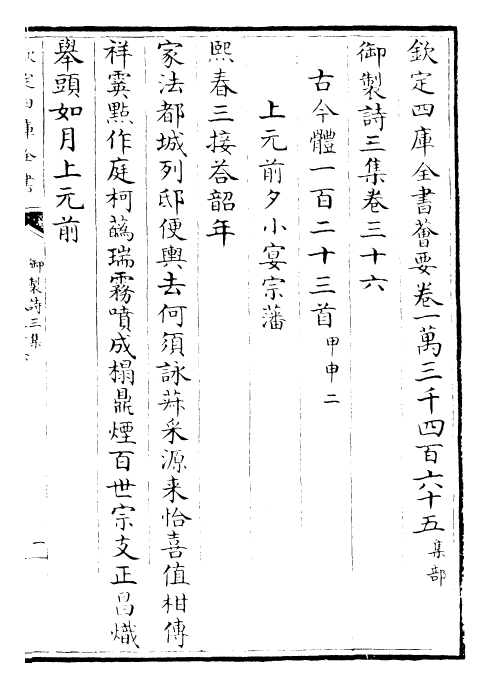 欽定四庫全書薈要卷一萬三千四百六十五集部
御製詩三集卷三十六
古今體一百二十三首甲申二
上元前夕小宴宗藩
熙春三接荅韶年
家法都城列邸便輿去何須詠萍采源来怡喜值柑傳
祥霙㸃作庭柯蘤瑞霧噴成榻鼎煙百世宗支正昌熾
舉頭如月上元前
欽定四庫全書
御製詩三集
一